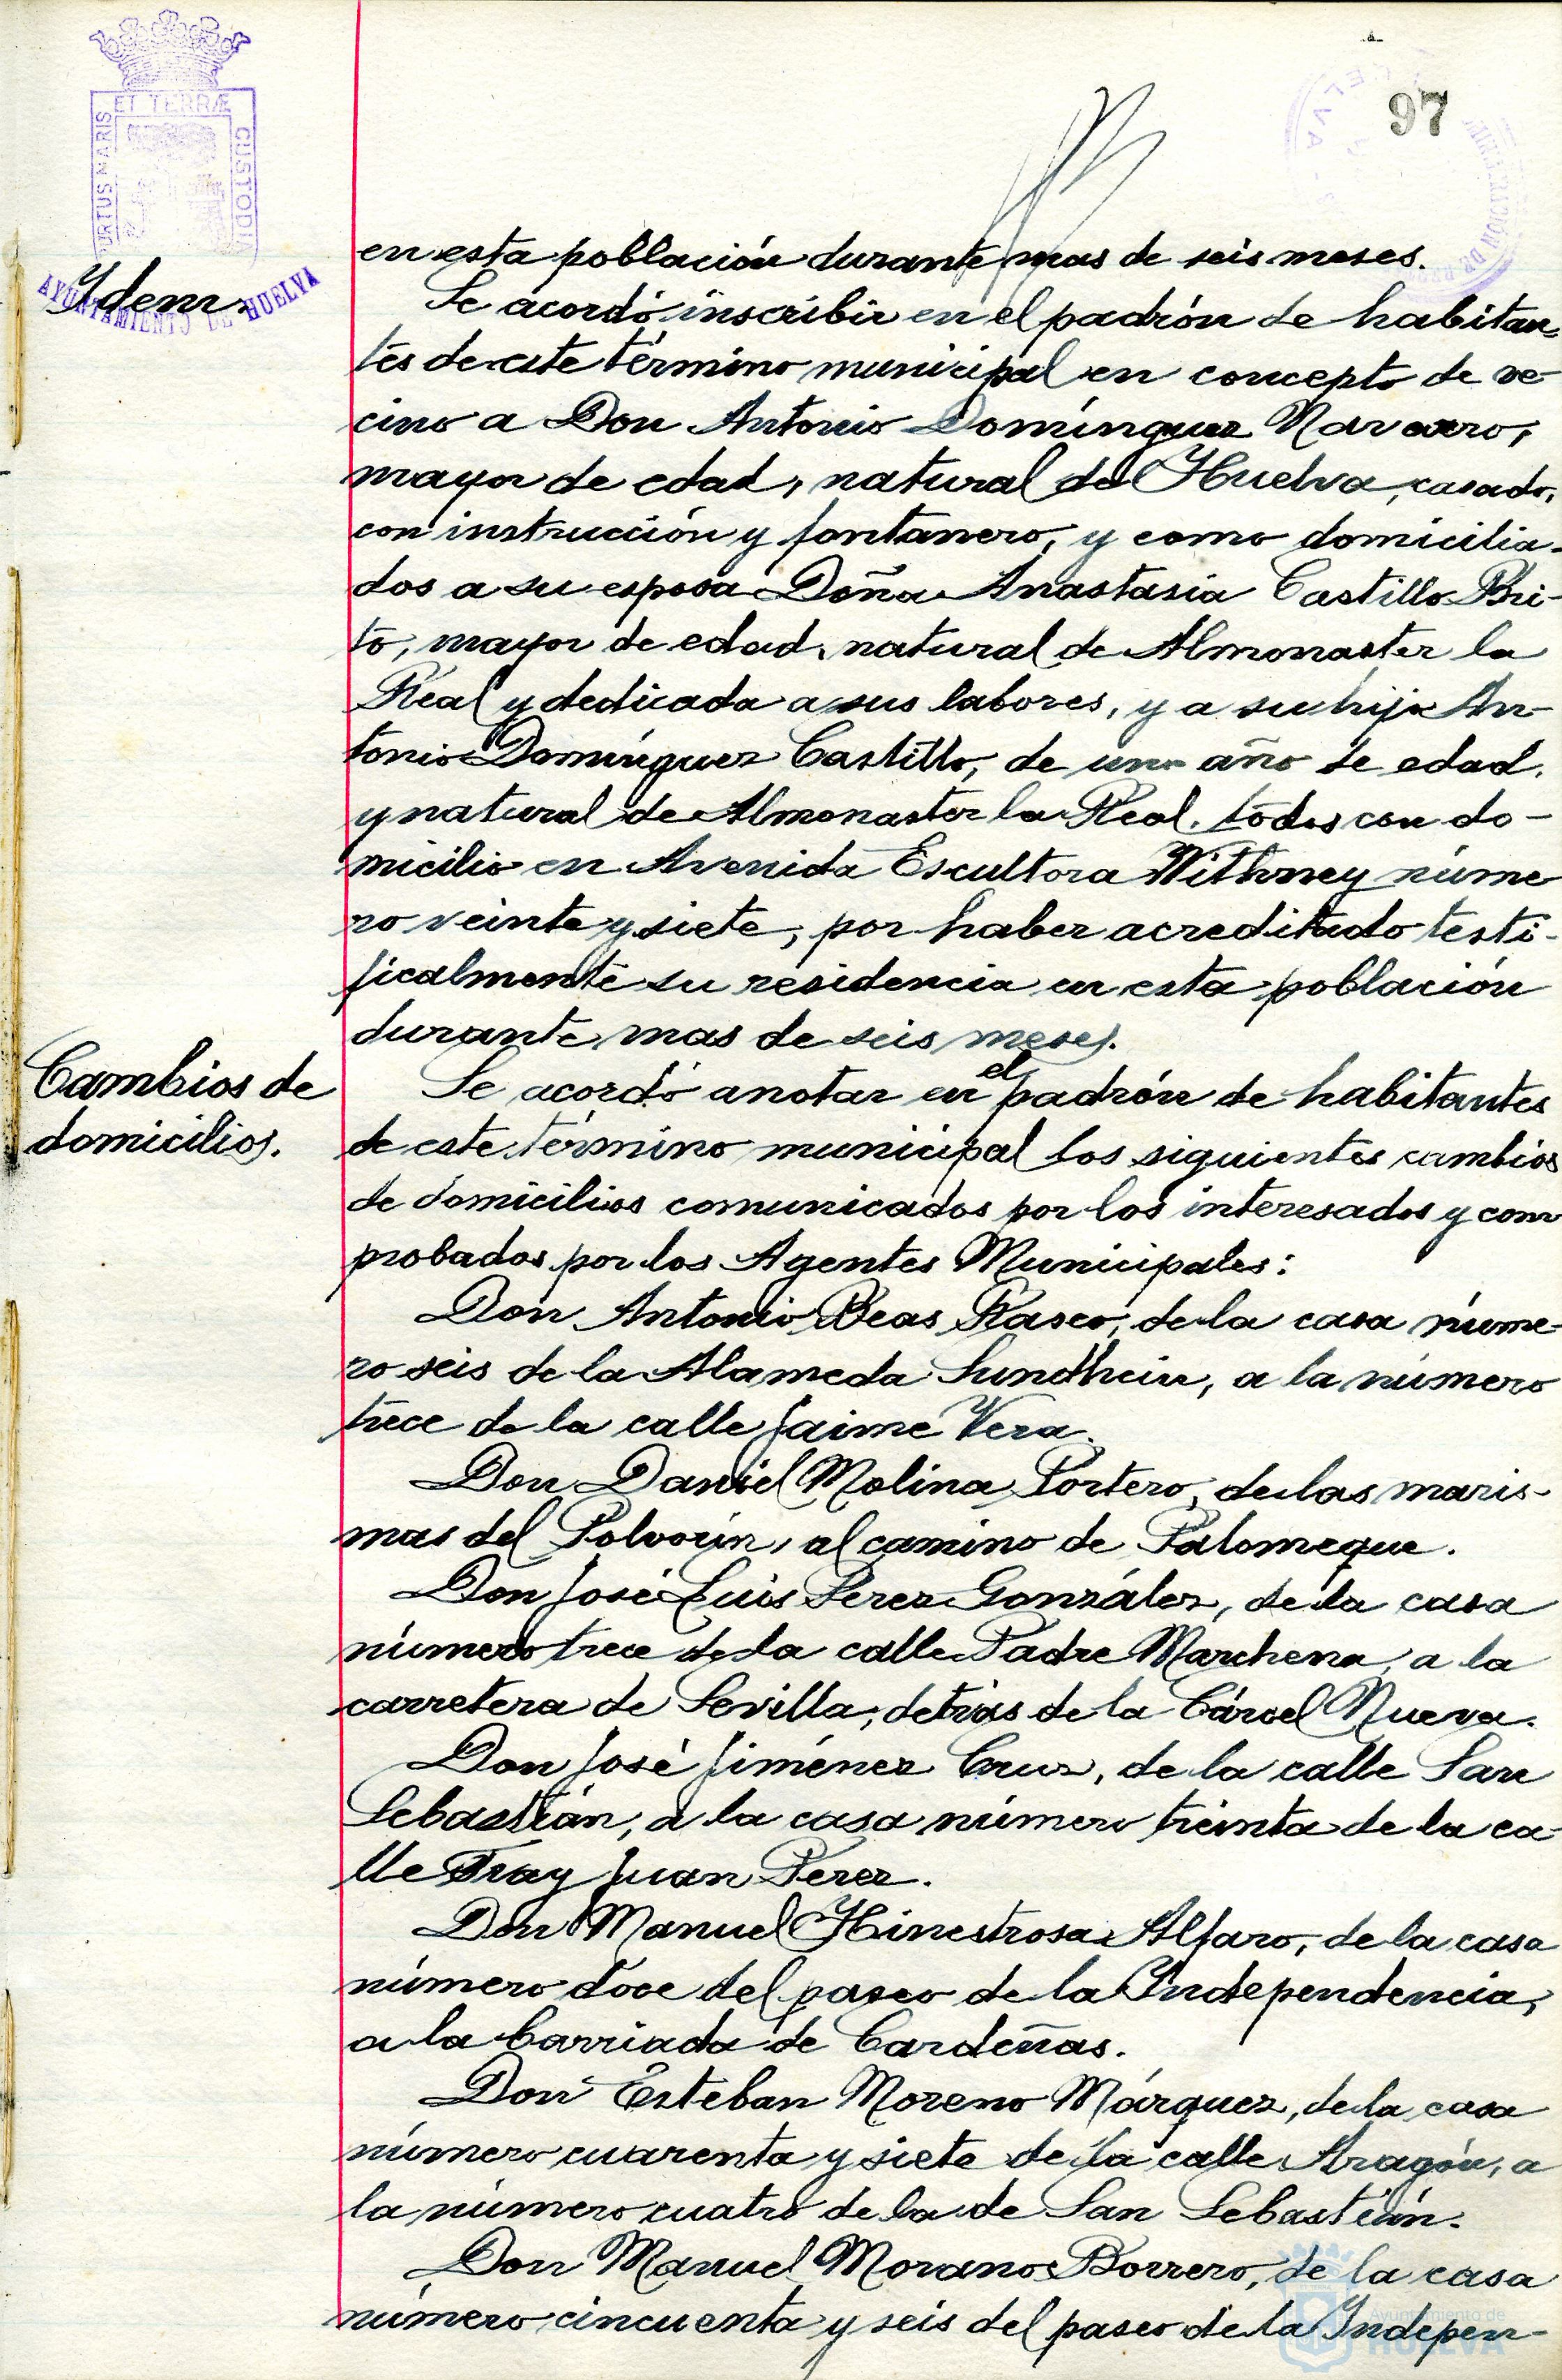 97
ET TERRÆ
PORTUS MARIS
CUSTODIA
AYUNTAMIENTO DE HUELVA
en esta población durante mas de seis meses.
Idem.
Se acordó inscribir en el padrón de habitan-
tes de este término municipal en concepto de ve-
cino a Don Antonio Domínguez Navarro,
mayor de edad, natural de Huelva, casado,
con instrucción y fontanero, y como domicilia-
dos a su esposa Doña Anastasia Castillo Bri-
to, mayor de edad, natural de Almonaster la
Real y dedicada a sus labores, y a su hijo An-
tonio Domínguez Castillo, de uno año de edad,
y natural de Almonaster la Real, todos con do-
micilio en Avenida Escultora Withney núme
ro veinte y siete, por haber acreditado testi-
ficalmente su residencia en esta población
durante mas de seis meses.
Cambios de
domicilios.
Se acordó anotar en el padrón de habitantes
de este término municipal los siguientes cambios
de domicilios comunicados por los interesados y com
probados por los Agentes Municipales:
Don Antonio Beas Rasco, de la casa núme-
ro seis de la Alameda Sundhein, a la número
trece de la calle Jaime Vera.
Don Daniel Molina Portero, de las maris-
mas del Polvorin, al camino de Palomeque.
Don José Luis Perez González, de la casa
número trece de la calle Padre Marchena, a la
carretera de Sevilla, detrás de la Cárcel Nueva.
Don José Jiménez Cruz, de la calle San
Sebastián, a la casa número treinta de la ca-
lle Fray Juan Perez.
Don Manuel Hinestrosa Alfaro, de la casa
número doce del paseo de la Independencia,
a la barriada de Cardeñas.
Don Esteban Moreno Márquez, de la casa
número cuarenta y siete de la calle Aragón, a
la número cuatro de la de San Sebastián.
Don Manuel Morano Borrero, de la casa
número cincuenta y seis del paseo de la Indepen-
Ayuntamiento de
HUELVA